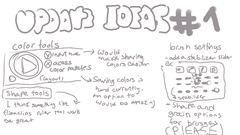 UPDATE IDEAS #1
color tools
access
color modules
Would make sharing colors easier
Saving colors is hard currently, an option to would be amazing
shape tools
I think something like flamecing ruler tool would be great
brush settings
-add a stabilizer slider
- shape and grain options for brushes
(PLEASE